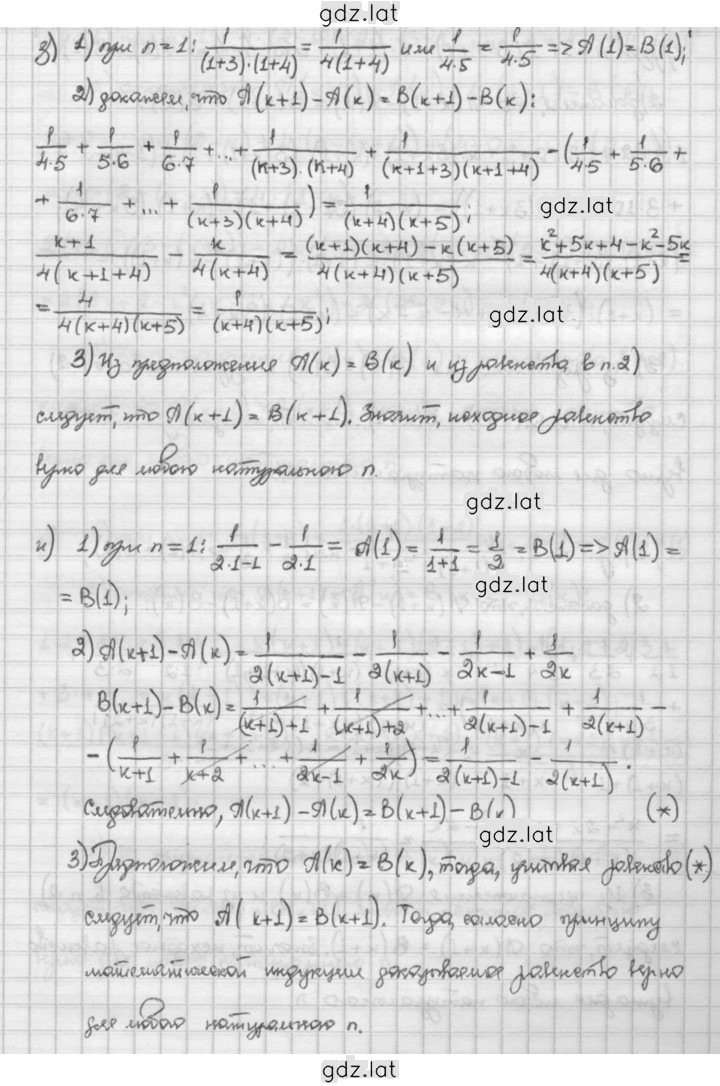 gdz.lat
з) 1) при n=1: 1/((1+3)·(1+4)) = 1/(4(1+4)) или 1/(4·5) = 1/(4·5) => A(1)=B(1);
2) докажем, что A(k+1)-A(k)=B(k+1)-B(k):
1/(4·5) + 1/(5·6) + 1/(6·7) +...+ 1/((k+3)·(k+4)) + 1/((k+1+3)(k+1+4)) - (1/(4·5) + 1/(5·6) +
+ 1/(6·7) +...+ 1/((k+3)(k+4))) = 1/((k+4)(k+5)); gdz.lat
(k+1)/(4(k+1+4)) - k/(4(k+4)) = ((k+1)(k+4)-k(k+5))/(4(k+4)(k+5)) = (k²+5k+4-k²-5k)/(4(k+4)(k+5)) =
= 4/(4(k+4)(k+5)) = 1/((k+4)(k+5)); gdz.lat
3) Из предположения A(k)=B(k) и из равенства в п.2)
следует, что A(k+1)=B(k+1). Значит, исходное равенство
верно для любого натурального n.
gdz.lat
и) 1) при n=1: 1/(2·1-1) - 1/(2·1) = A(1) = 1/(1+1) = 1/2 = B(1) => A(1) =
= B(1); gdz.lat
2) A(k+1)-A(k) = 1/(2(k+1)-1) - 1/(2(k+1)) - 1/(2k-1) + 1/(2k)
B(k+1)-B(k) = 1/((k+1)+1) + 1/((k+1)+2) +...+ 1/(2(k+1)-1) + 1/(2(k+1)) -
- (1/(k+1) + 1/(k+2) +...+ 1/(2k-1) + 1/(2k)) = 1/(2(k+1)-1) - 1/(2(k+1)).
Следовательно, A(k+1)-A(k)=B(k+1)-B(k) (*)
gdz.lat
3) Предположим, что A(k)=B(k), тогда, учитывая равенство (*)
следует, что A(k+1)=B(k+1). Тогда, согласно принципу
математической индукции доказываемое равенство верно
для любого натурального n.
gdz.lat